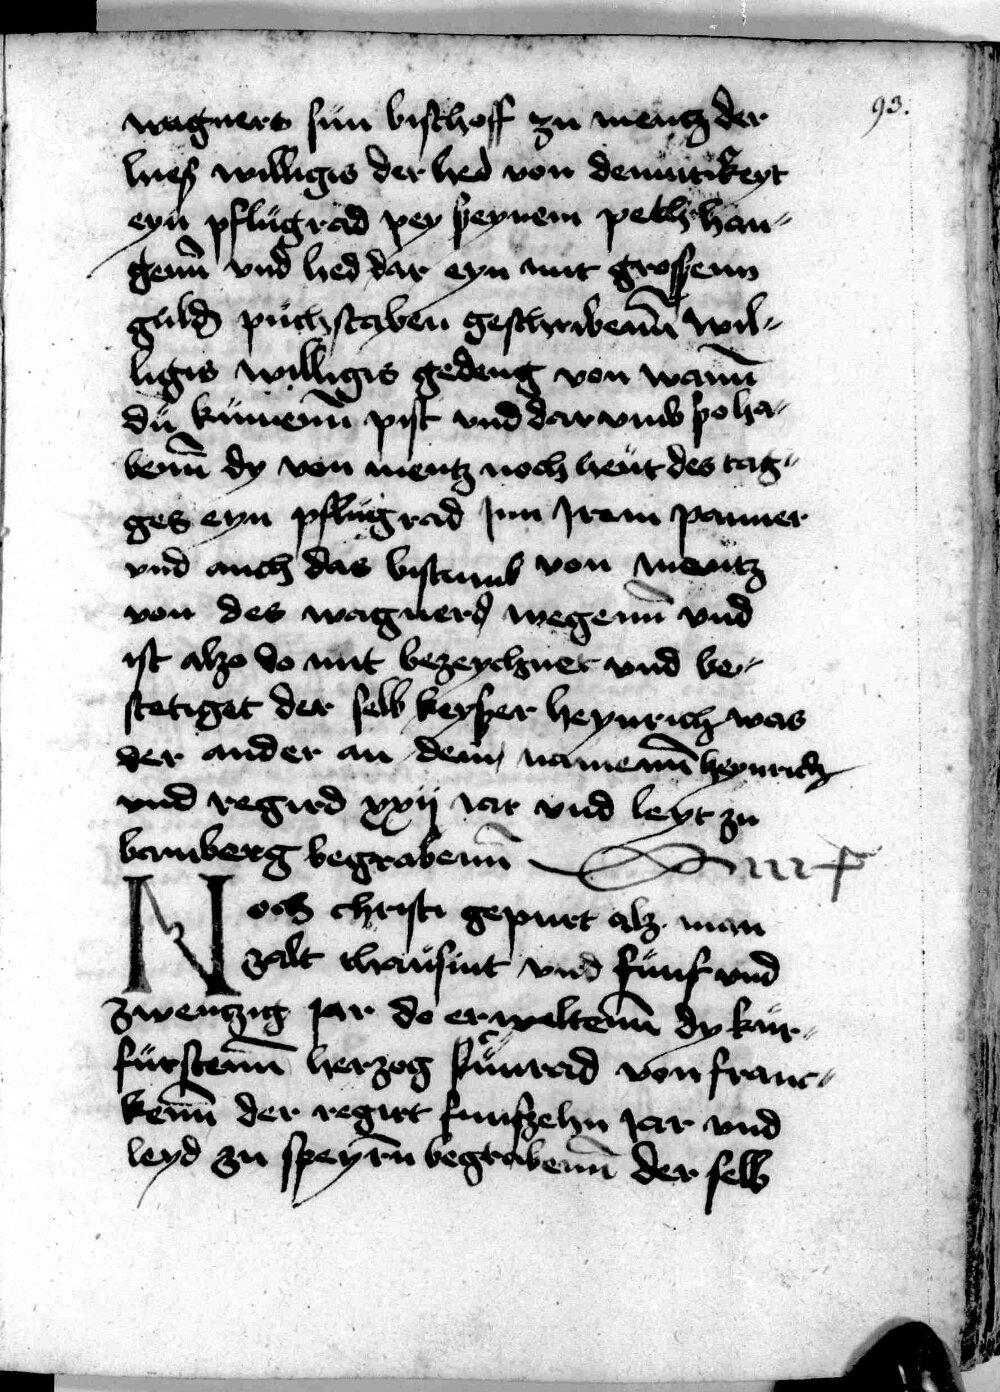 93.
wagners sün bischoff zu mentz der
hieß willigis der hed von demütikeyt
eyn pflügrad pey seynem peth han-
genn̄ vnd hed dar eyn mit grossenn
guld püchstaben geschribenn̄ wil-
ligis willigis gedeng von wann̄
dü kümenn̄ pist vnd dar vmb so ha-
benn̄ dy von mentz noch heüt des tag-
ges eyn pflüg rad jnn jrem panner
vnd auch das bistumb von mentz
von des wagners wegenn̄ vnd
ist alzo do mit bezeychnet vnd be-
stetiget der selb keyser heynrich was
der ander an dem namenn̄ heynrich
vnd regird xxij iar vnd leyt zu
bamberg begrabenn̄
Noch christi gepurt alz man
zalt thaüsint vnd fünf vnd
zwentzig jar do erweltenn̄ dy kür-
fürstenn̄ herzog künrad von franc-
kenn̄ der regirt funfzehn jar vnd
leyd zu speyrn begrabenn̄ der selb